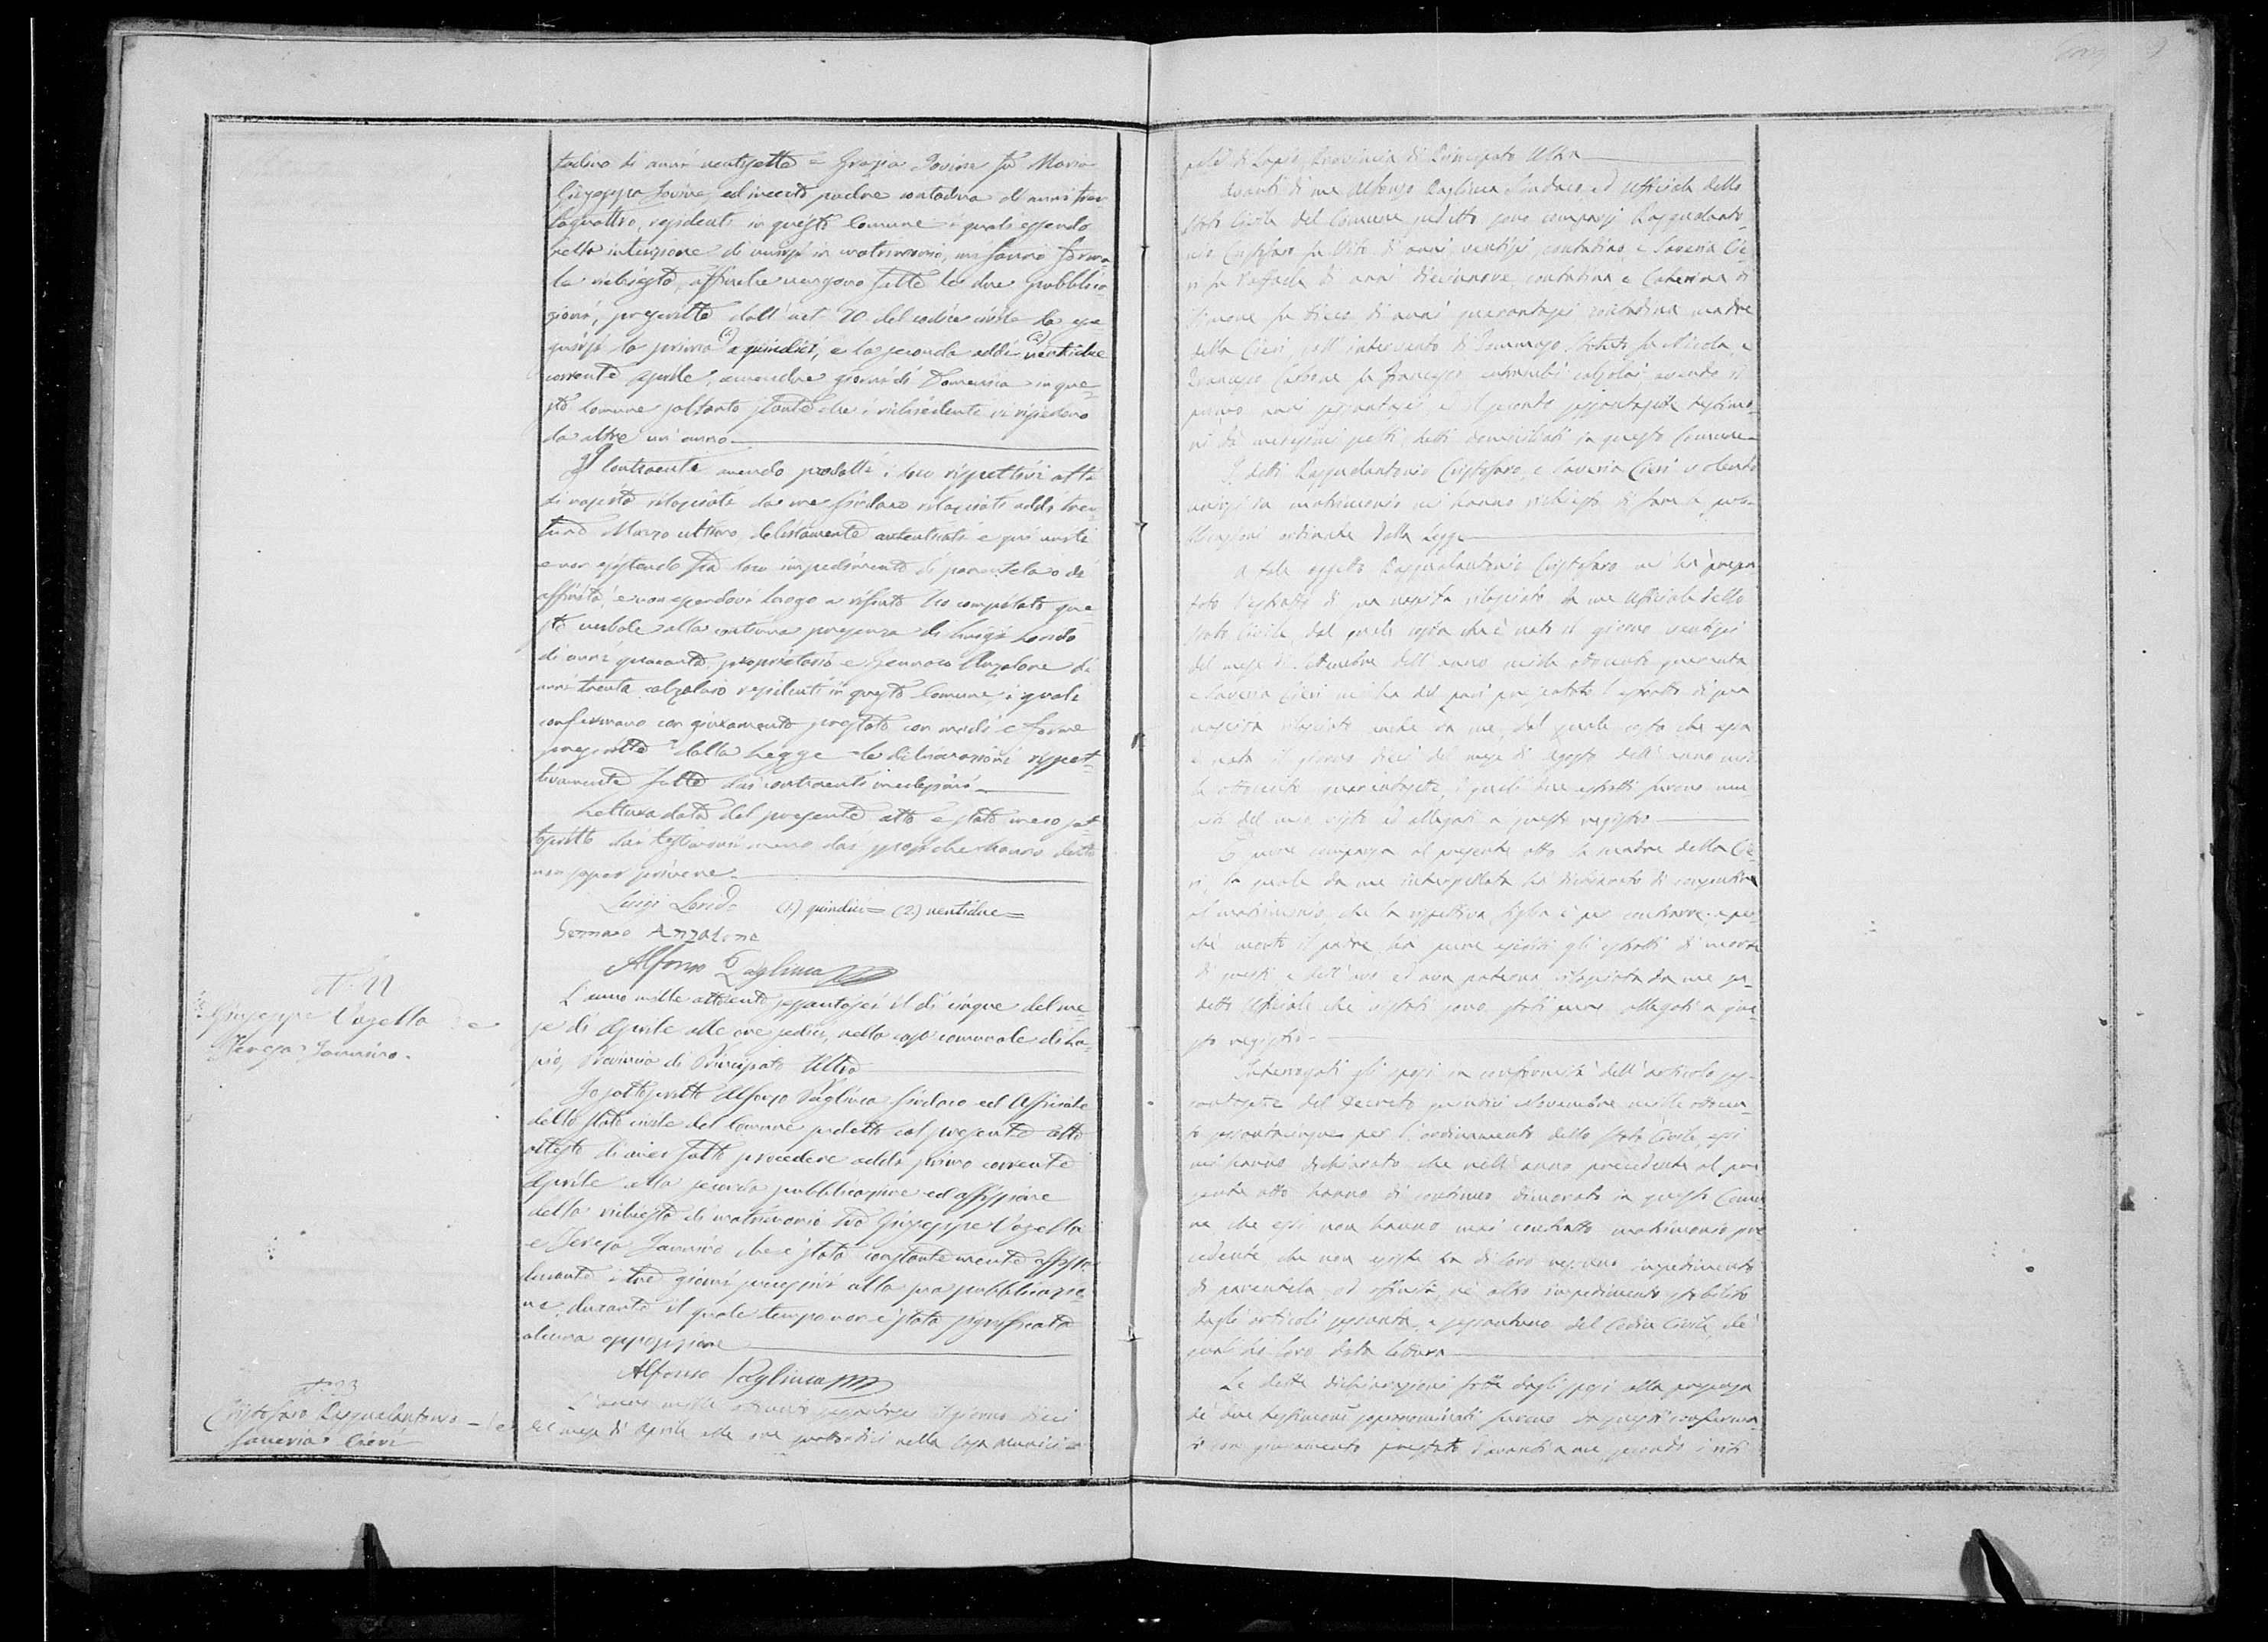 tadino di anni ventisette e Grazia Iovine fu Maria
Giuseppa Iovine, ed incerto padre contadina di anni tren
taquattro, residenti in questo Comune i quali essendo
nella intenzione di unirsi in matrimonio, mi fanno forma
le richiesta, affinche vengono fatte le due pubblica
zioni, prescritte dall'art. 70 del codice civile da ese
guirsi la prima (1) a quindici, e la seconda addi (2) ventidue
corrente Aprile, amendue giorni di Domenica in que
sto Comune soltanto stante che i richiedenti vi risiedono
da oltre un anno
I contraenti avendo prodotti i loro rispettivi atti
di nascita rilasciati da me Sindaco rilasciati addi tren
tuno Marzo ultimo debitamente autenticati e qui uniti
e non esistendo fra loro impedimento di parentela o di
affinità, e non essendovi luogo a rifiuto ho compilato que
sto verbale alla continua presenza di Luigi Londo
di anni quaranta proprietario e Gennaro Anzalone di
anni trenta calzolaio residenti in questo Comune, i quali
confermano con giuramento prestato con modi e forme
prescritte dalla Legge le dichiarazioni rispet
tivamente fatte dai contraenti medesimi
Lettura data del presente atto è stato meco sot
toscritto dai testimoni meno dai sposi che hanno detto
non saper scrivere
Luigi (1) quindici = (2) ventidue =
Gennaro Anzalone
Alfonso Pagliuca
N. 22
Giuseppe Vozella e
Teresa Iannino.
L'anno mille ottocento sessantasei il di cinque del me
se di Aprile alle ore sedici, nella casa comunale di La
pio, Provincia di Principato Ultra
Io sottoscritto Alfonso Pagliuca Sindaco ed Uffiziale
dello stato civile del Comune sudetto col presente atto
attesto di aver fatto procedere addi primo corrente
Aprile alla seconda pubblicazione ed affissione
della richiesta di matrimonio tra Giuseppe Vozella
e Teresa Iannino che è stata constantemente affissa
durante i tre giorni successivi alla sua pubblicazio
ne, durante il quale tempo non è stata significata
alcuna opposizione
Alfonso Pagliuca
N. 23
Cristofaro Pasqualantonio e
Saveria Cieri
L'anno mille ottocento sessantasei il giorno dieci
del mese di Aprile alle ore quattordici nella Casa Munici
pale di Lapio, Provincia di Principato Ultra
Avanti di me Alfonso Pagliuca Sindaco ed Uffiziale dello
Stato Civile del Comune sudetto sono comparsi Pasqualanto
nio Cristofaro fu Vito di anni ventisei, contadino, e Saveria Cie
ri fu Raffaele di anni diecinnove, contadina e Caterina di
Simone fu di anni quarantasei contadina madre
della Cieri, coll'intervento di Tommaso fu Nicola, e
Francesco Carbone fu Francesco entrambi calzolai avendo il
primo anni sessantasei, ed il secondo sessantasette testimo
ni da medesimi scelti, detti domiciliati in questo Comune
I detti Pasqualantonio Cristofaro, e Saveria Cieri volendo
unirsi in matrimonio mi hanno richiesto di fare le pub
blicazioni ordinate dalla Legge
A tale oggetto Pasqualantonio Cristofaro mi ha presen
tato l'estratto di sua nascita rilasciato da me Uffiziale dello
Stato Civile, dal quale costa che è nato il giorno ventisei
del mese di Settembre dell'anno mille ottocento quaranta
e Saveria Cieri mi ha del pari presentato l'estratto di sua
nascita rilasciato anche da me, dal quale costa che essa
è nata il giorno dieci del mese di Agosto dell'anno mil
le ottocento quarantasette, i quali due estratti furono mu
niti del mio visto ed allegati a questo registro
È pure comparsa al presente atto la madre della Cie
ri, la quale da me interpellata ha dichiarato di consentire
al matrimonio, che la rispettiva figlia è per contrarre, e per
chè morto il padre ha pure esibiti gli estratti di morte
di questi e dell'avo ed ava paterna rilasciata da me su
detto Uffiziale che vistati sono stati pure allegati a que
sto registro
Interrogati gli sposi in conformità dell'articolo ses
santasette del Decreto quindici Novembre mille ottocen
to sessantacinque per l'ordinamento dello Stato Civile, essi
mi hanno dichiarato che nell'anno precedente al pre
sente atto hanno di continuo dimorato in questo Comu
ne che essi non hanno mai contratto matrimonio pre
cedente che non esiste tra di loro nessuno impedimento
di parentela od affinità, nè altro impedimento stabilito
dagli articoli sessanta, e sessantuno del Codice Civile, de'
quali ho loro data lettura
Le dette dichiarazioni fatte dagli sposi alla presenza
de' due testimoni soprannominati furono da questi conferma
ti con giuramento prestato davanti a me, secondo i riti